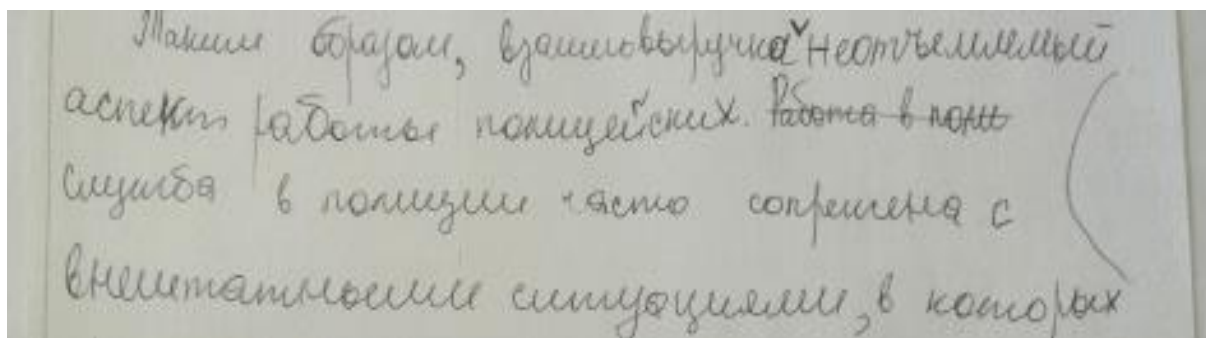 Таким образом, взаимовыручка неотъемлемый
аспект работы полицейских. Работа в поли
Служба в полиции часто сопрежена с
внештатными ситуациями, в которых